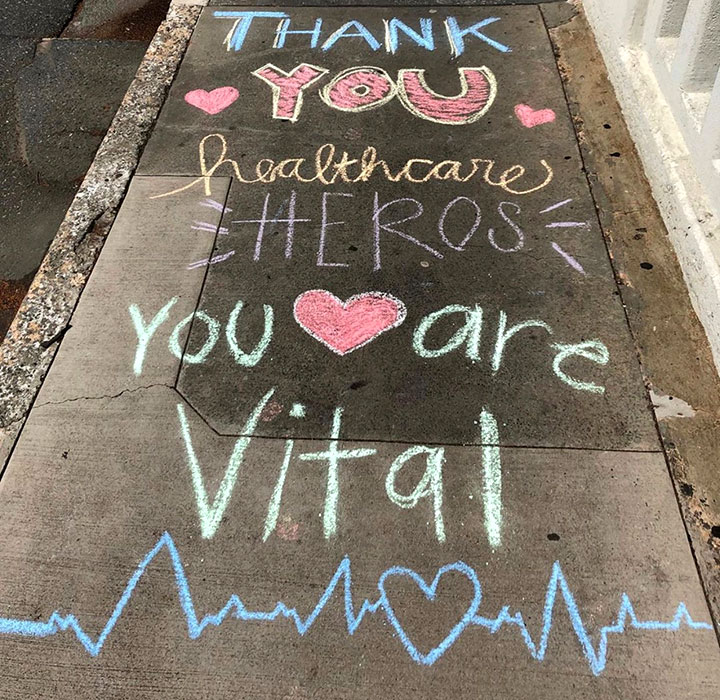 THANK
YOU
healthcare
HEROS
You are
Vital